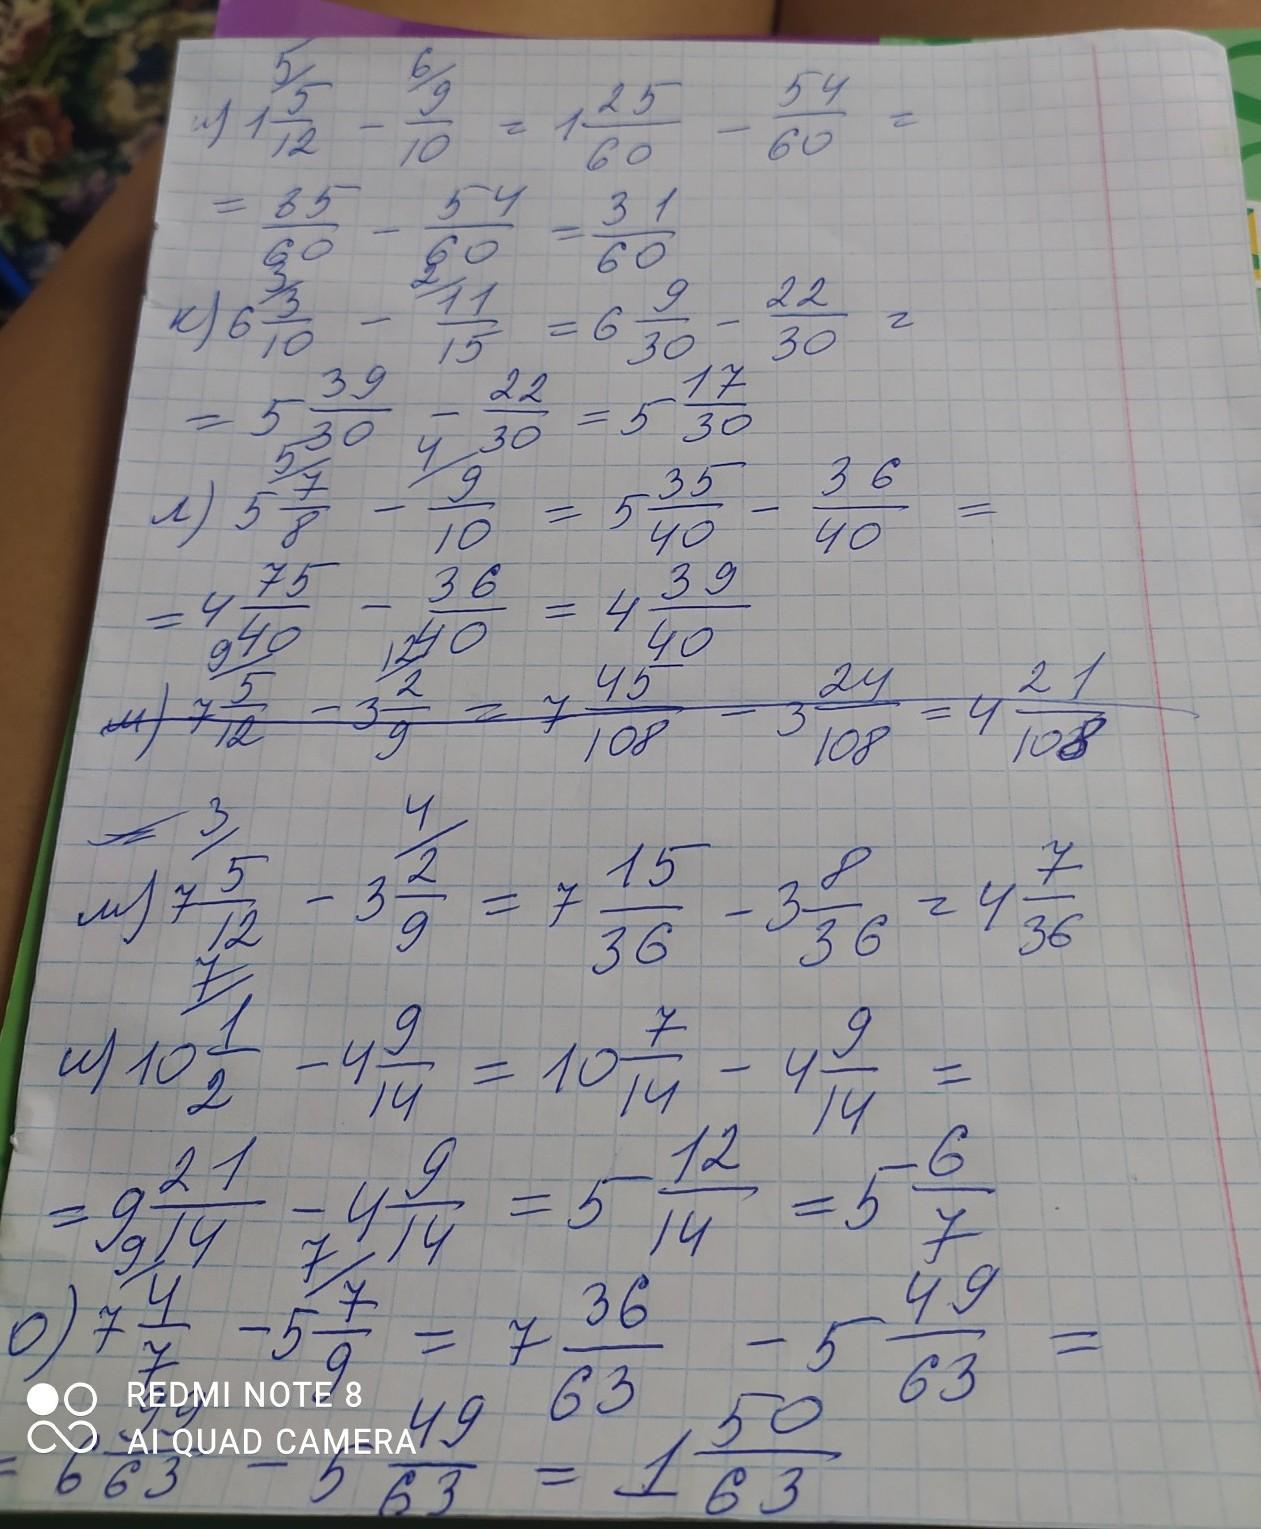 5/ 6/
и) 1 5/12 - 9/10 = 1 25/60 - 54/60 =
= 85/60 - 54/60 = 31/60
3/ 2/
к) 6 3/10 - 11/15 = 6 9/30 - 22/30 =
= 5 39/30 - 22/30 = 5 17/30
5/ 4/
л) 5 7/8 - 9/10 = 5 35/40 - 36/40 =
= 4 75/40 - 36/40 = 4 39/40
9/ 12/
м) 7 5/12 - 3 2/9 = 7 45/108 - 3 24/108 = 4 21/108
= 3/ 4/
м) 7 5/12 - 3 2/9 = 7 15/36 - 3 8/36 = 4 7/36
7/
н) 10 1/2 - 4 9/14 = 10 7/14 - 4 9/14 =
= 9 21/14 - 4 9/14 = 5 12/14 = 5 6/7
9/ 7/
о) 7 4/7 - 5 7/9 = 7 36/63 - 5 49/63 =
= 6 99/63 - 5 49/63 = 1 50/63
REDMI NOTE 8
AI QUAD CAMERA